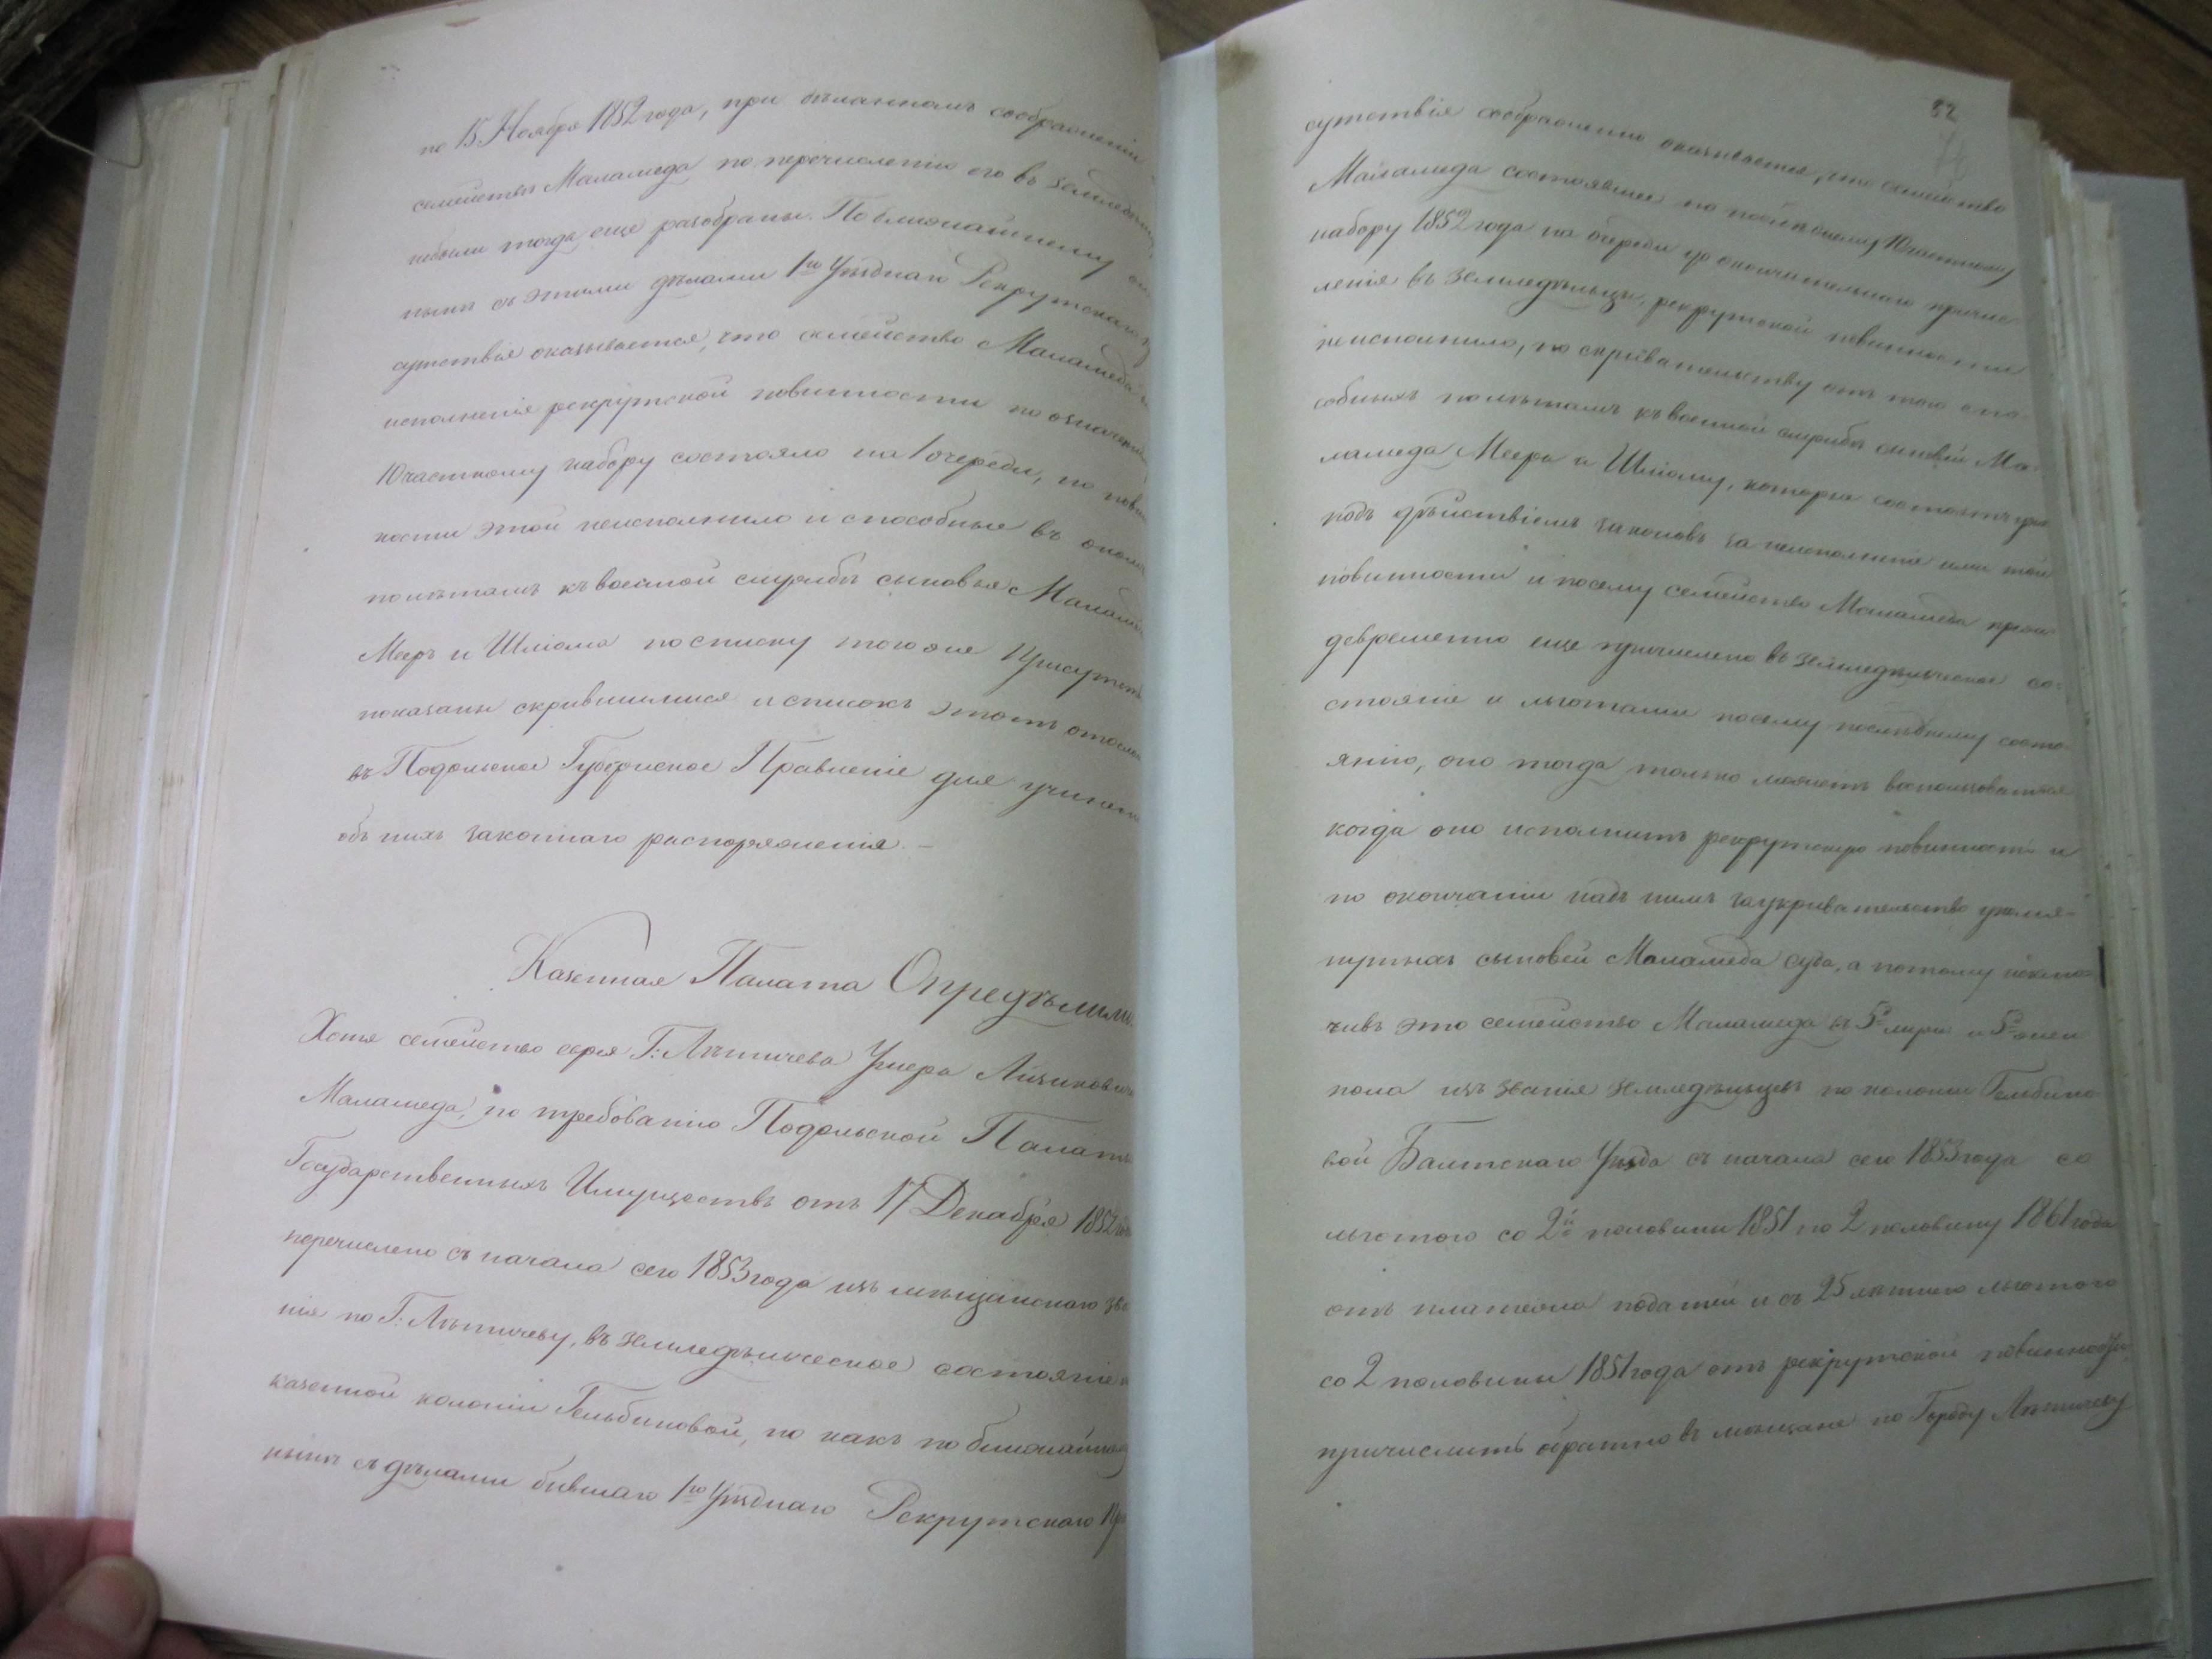 по 15 Ноября 1852 года, при дѣланномъ соображеніи
семейства Маламеда по перечисленію его въ земледѣль
небыли тогда еще разобраны. По ближайшему
нынѣ съ этими дѣлами 1го Уѣзднаго Рекрутскаго
сутствія оказывается, что семейство Маламеда
исполненія рекрутской повинности по означен
10частному набору состояло на 1 очереди, но повин
ности этой неисполнило и способные въ оном
по лѣтамъ къ военной службѣ сыновья Маламед
Мееръ и Шліома по списку того же Присутст
показаны скрывшимися и списокъ этотъ отосла
въ Подольское Губернское Правленіе для учинен
объ нихъ законнаго распоряженія. –
Казенная Палата Опредѣлили:
Хотя семейство еврея Г: Лѣтичева Ушера Айзикович
Маламеда, по требованію Подольской Палаты
Государственныхъ Имуществъ отъ 17 Декабря 1852
перечислено съ начала сего 1853 года изъ мѣщанскаго зва
нія по Г: Лѣтичеву, въ земледѣльческое состояніе
казенной колоніи Гельбиновой, но какъ по ближайшему
нынѣ съ дѣлами бывшаго 1го Уѣзднаго Рекрутскаго При
82
сутствія соображенію оказывается, что семейство
Маламеда состоявшее по послѣднему 10частному
набору 1852 года на очереди до окончательнаго причис
ленія въ земледѣльцы, рекрутской повинности
неисполнило, по скривательству отъ того спо
собныхъ по лѣтамъ къ военной службѣ сыновей Ма
ламеда Меера и Шліому, которые состоятъ уже
подъ дѣйствіемъ законовъ за неисполненіе ими той
повинности и посему семейство Маламеда преж
девременно еще причислено въ земледѣльческое со:
стояніе и льготами по сему послѣднему состо
янію, оно тогда только можетъ воспользоваться
когда оно исполнитъ рекрутскую повинность и
по окончаніи надъ нимъ за укривательство упомя-
нутыхъ сыновей Маламеда суда, а потому исклю
чивъ это семейство Маламеда въ 5 муж: и 5 жен
пола изъ званія земледѣльцевъ по колоніи Гельбино
вой Балтскаго Уѣзда съ начала сего 1853 года со
льготою со 2й половины 1851 по 2 половину 1861 года
отъ платежа податей и съ 25 лѣтнею льготою
со 2 половины 1851 года отъ рекрутской повинности
причислить обратно въ мѣщане по Городу Лѣтичеву